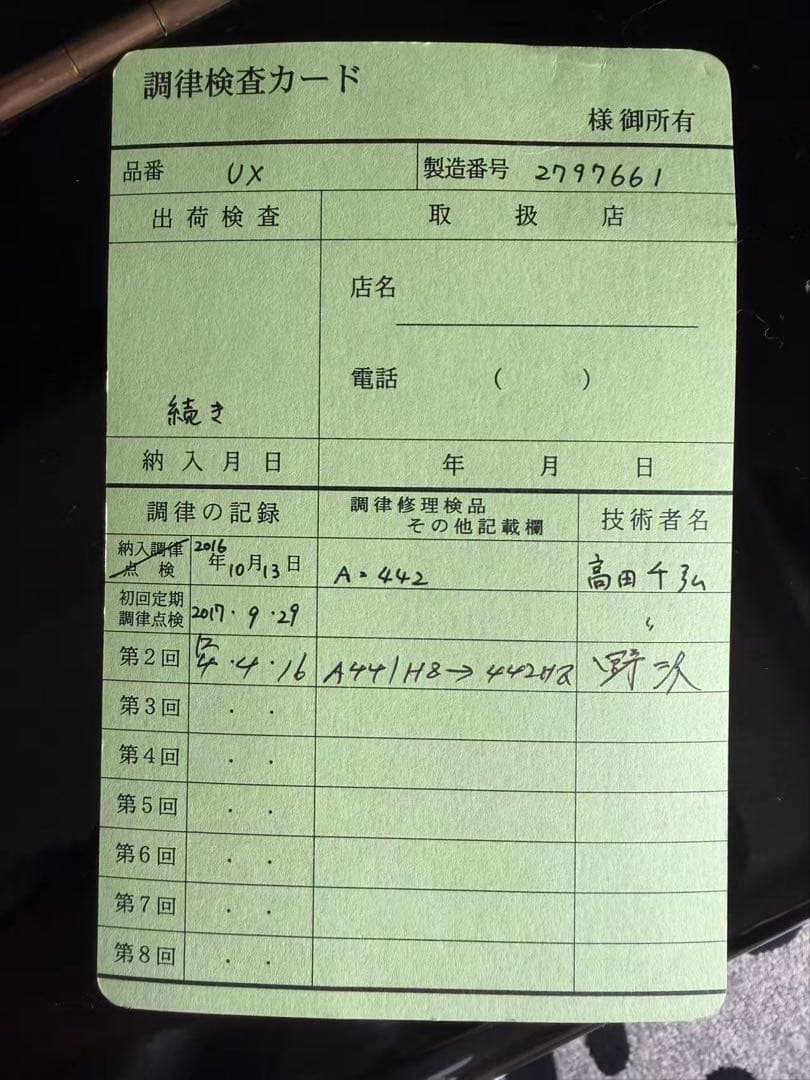 調律検査カード
様御所有
品番 UX 製造番号 2797661
出荷検査 取扱店
店名
電話 ( )
続き
納入月日 年 月 日
調律の記録 調律修理検品 その他記載欄 技術者名
納入調律点検 2016年10月13日 A=442 高田千弘
初回定期調律点検 2017・9・29 〃
第2回 4・4・16 A441HZ→442HZ
第3回 ・ ・
第4回 ・ ・
第5回 ・ ・
第6回 ・ ・
第7回 ・ ・
第8回 ・ ・